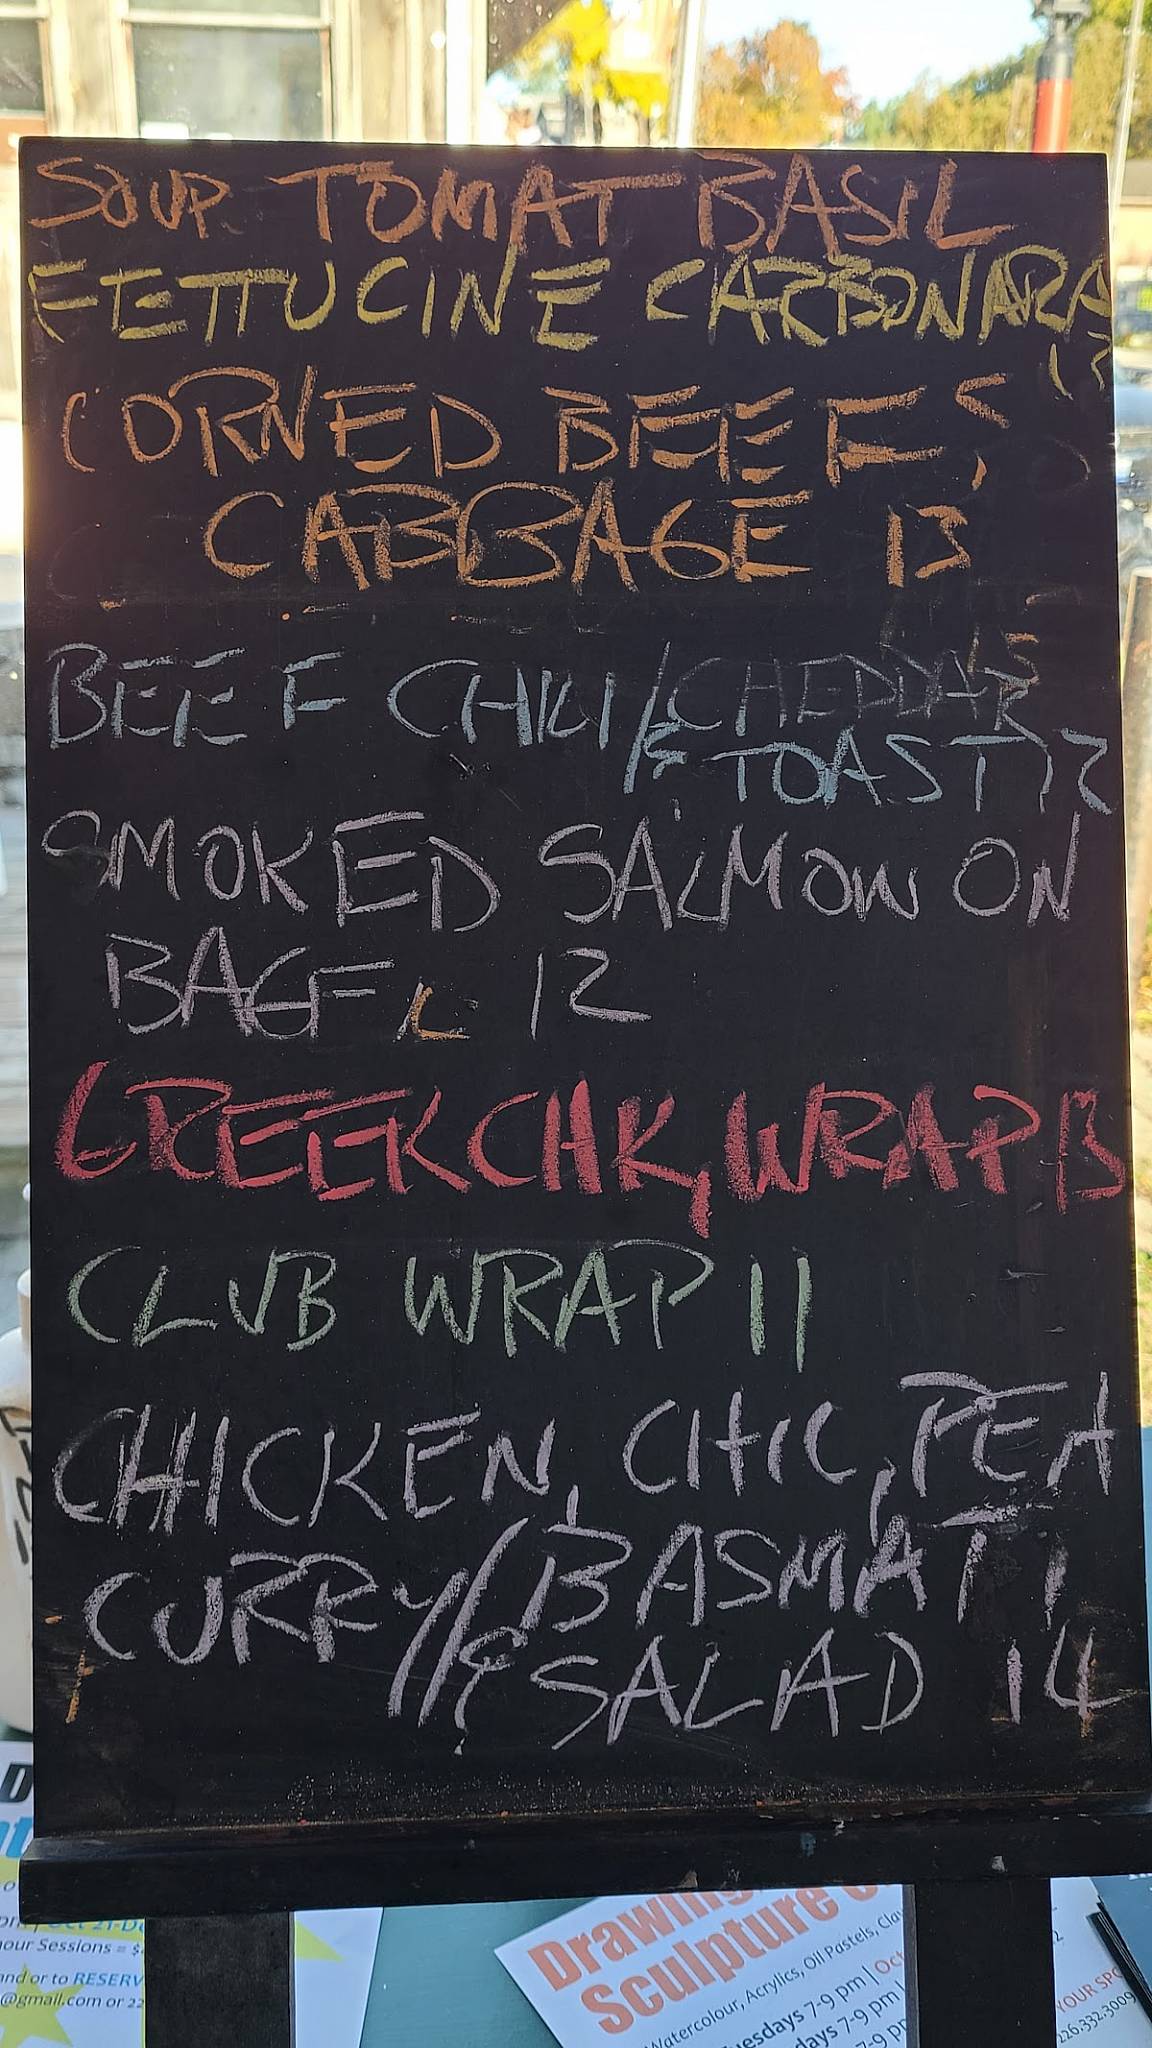 SOUP TOMAT BASIL
FETTUCINE CARBONARA
13
CORNED BEEF &
CABBAGE 13
BEEF CHILI/CHEDDAR
& TOAST 12
SMOKED SALMON ON
BAGEL 12
GREEK CHK, WRAP 13
CLUB WRAP 11
CHICKEN, CHIC, PEA
CURRY/BASMATI
& SALAD 14
Drawing
Sculpture
Watercolour, Acrylics, Oil Pastels, Clay
7-9 pm | Oct
days 7-9 pm |
7-9 pm
our Sessions = $
or to RESERV
@gmail.com or 22
YOUR SPO
226.332.3009